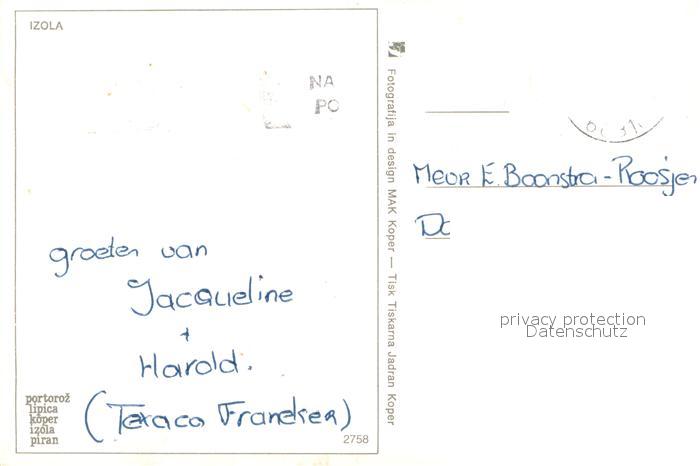 IZOLA
NA
PO
groeten van
Jacqueline
+
Harold.
(Texaco Franeker)
portorož
lipica
koper
izola
piran
2758
Fotografija in design MAK Koper — Tisk Tiskarna Jadran Koper
Mevr E. Boonstra-Roosjen
privacy protection
Datenschutz